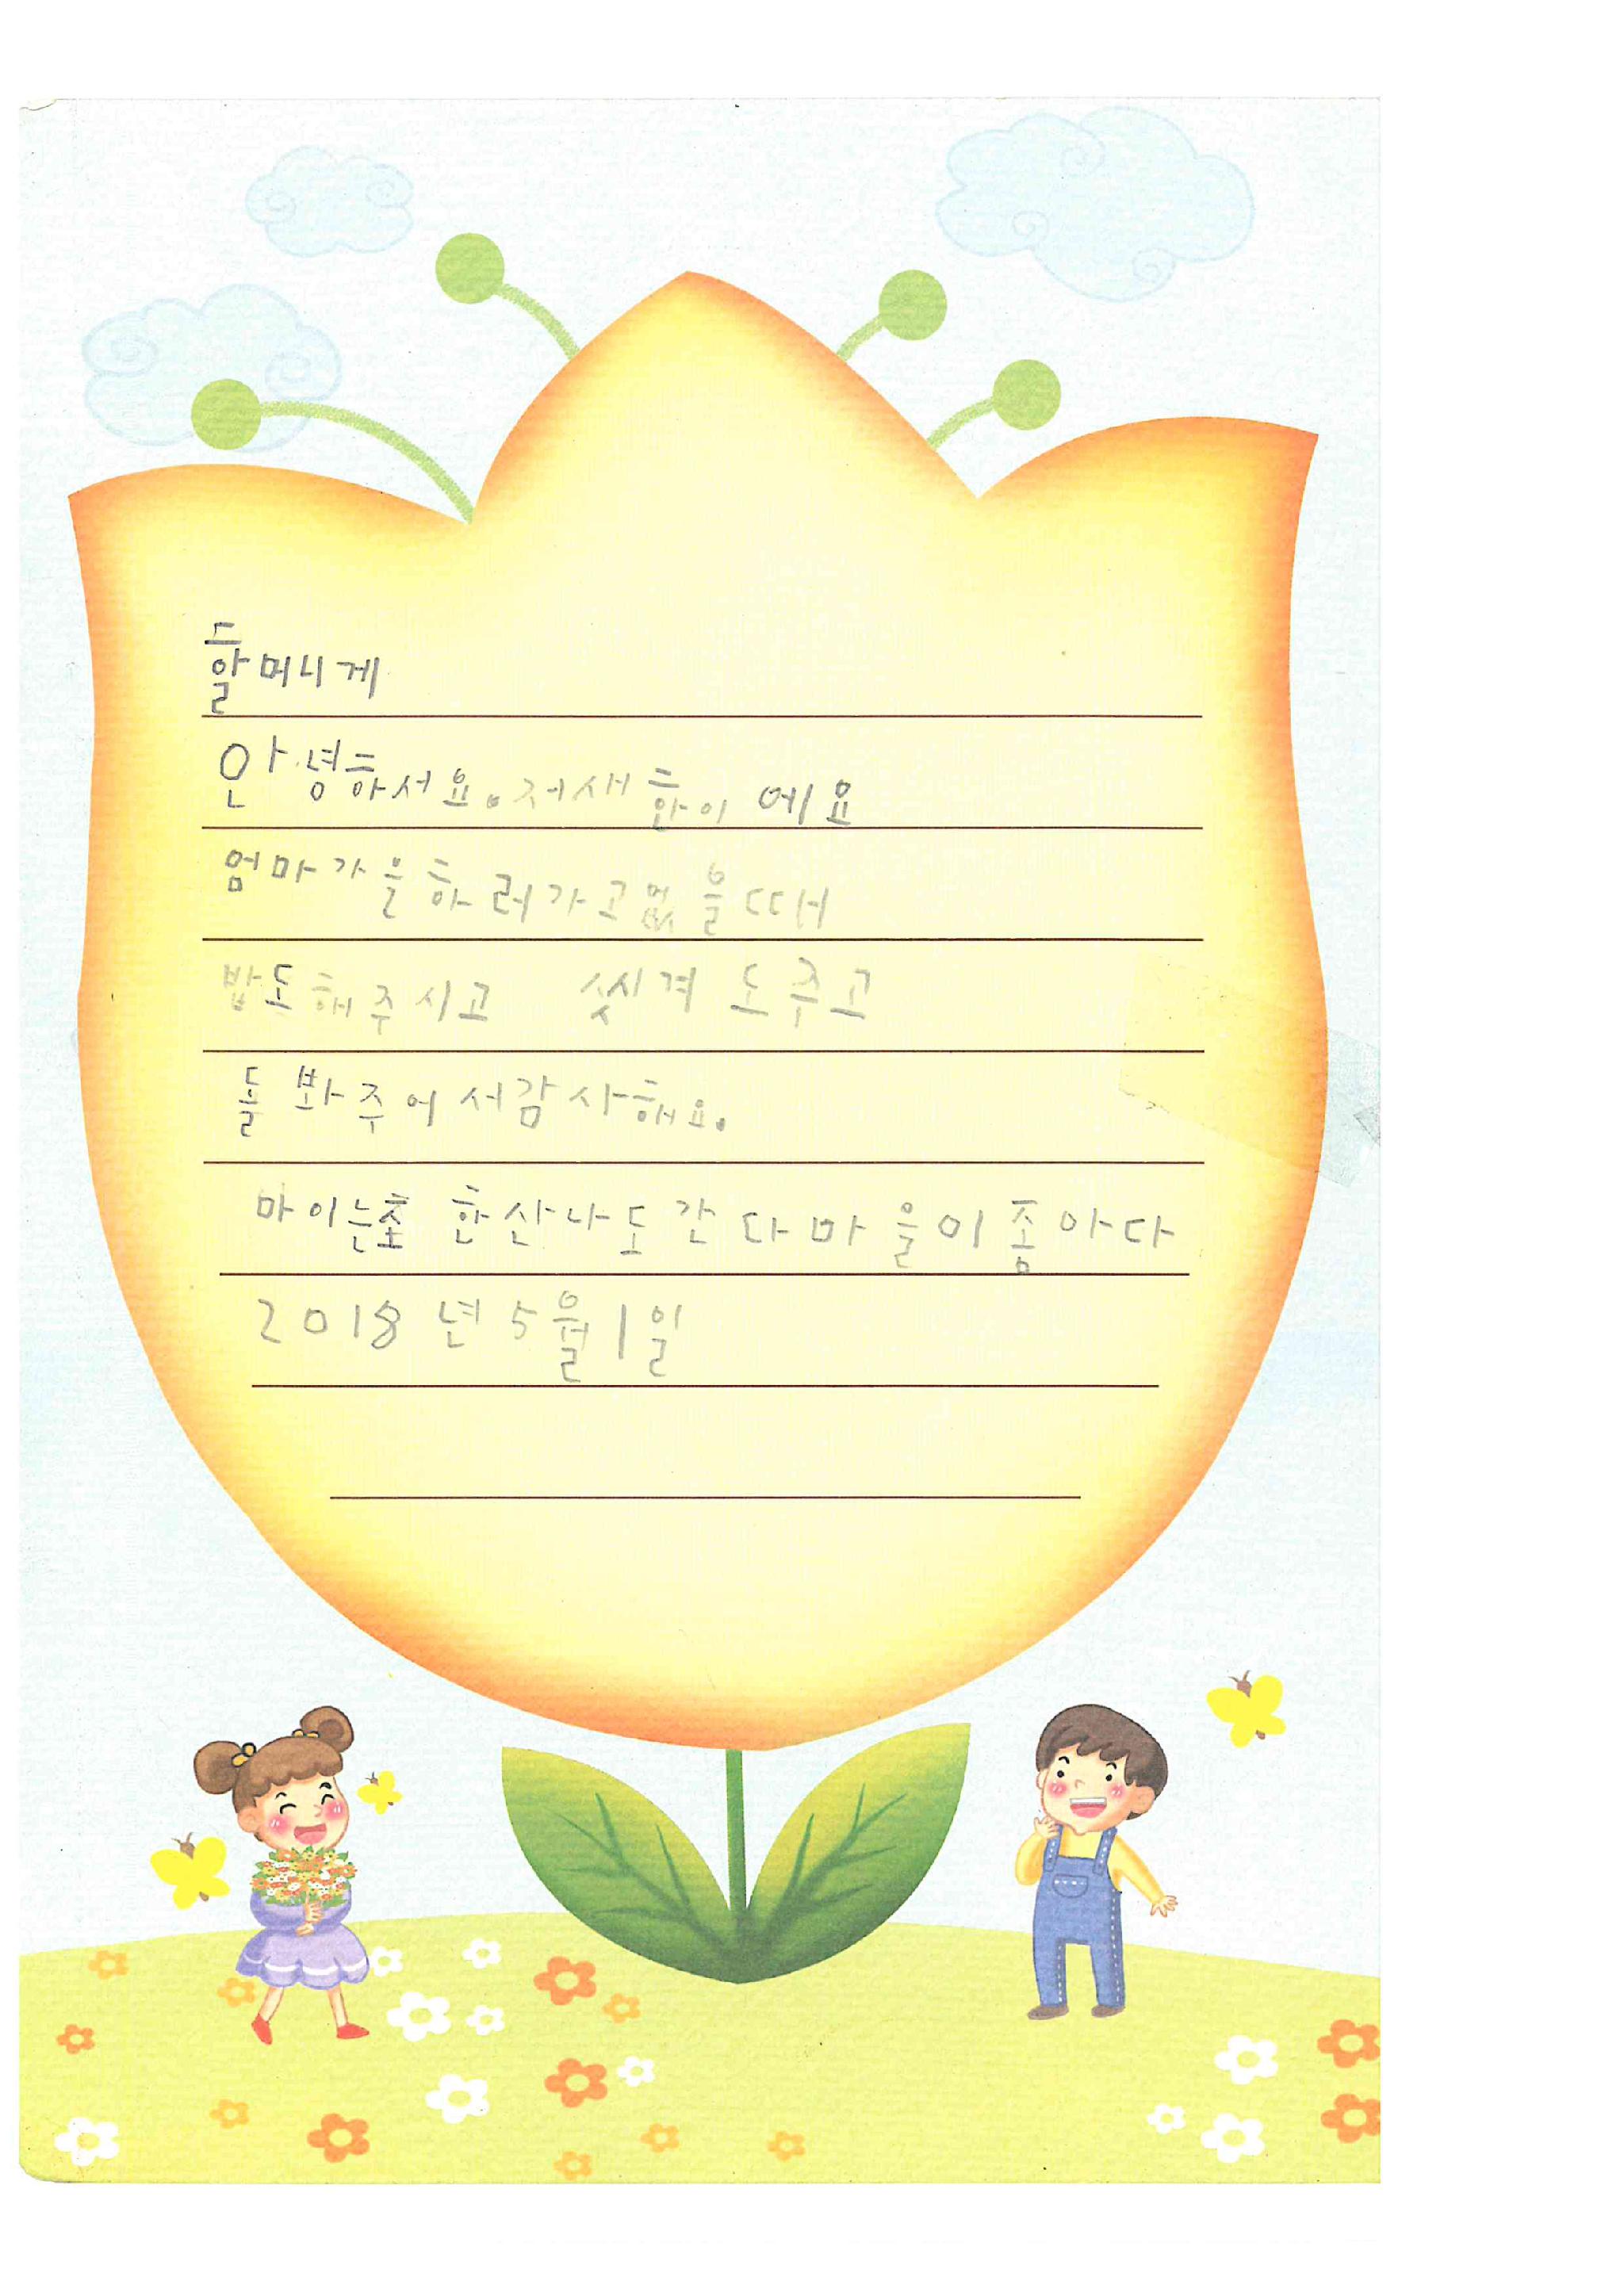 할머니게
안녕하서요. 저새한이에요
엄마가을하러가고없을때
밥도해주시고 씻겨도주고
돌봐주어서감사해요.
마이는촣한산나도간다마을이좋아다
2018년5월1일